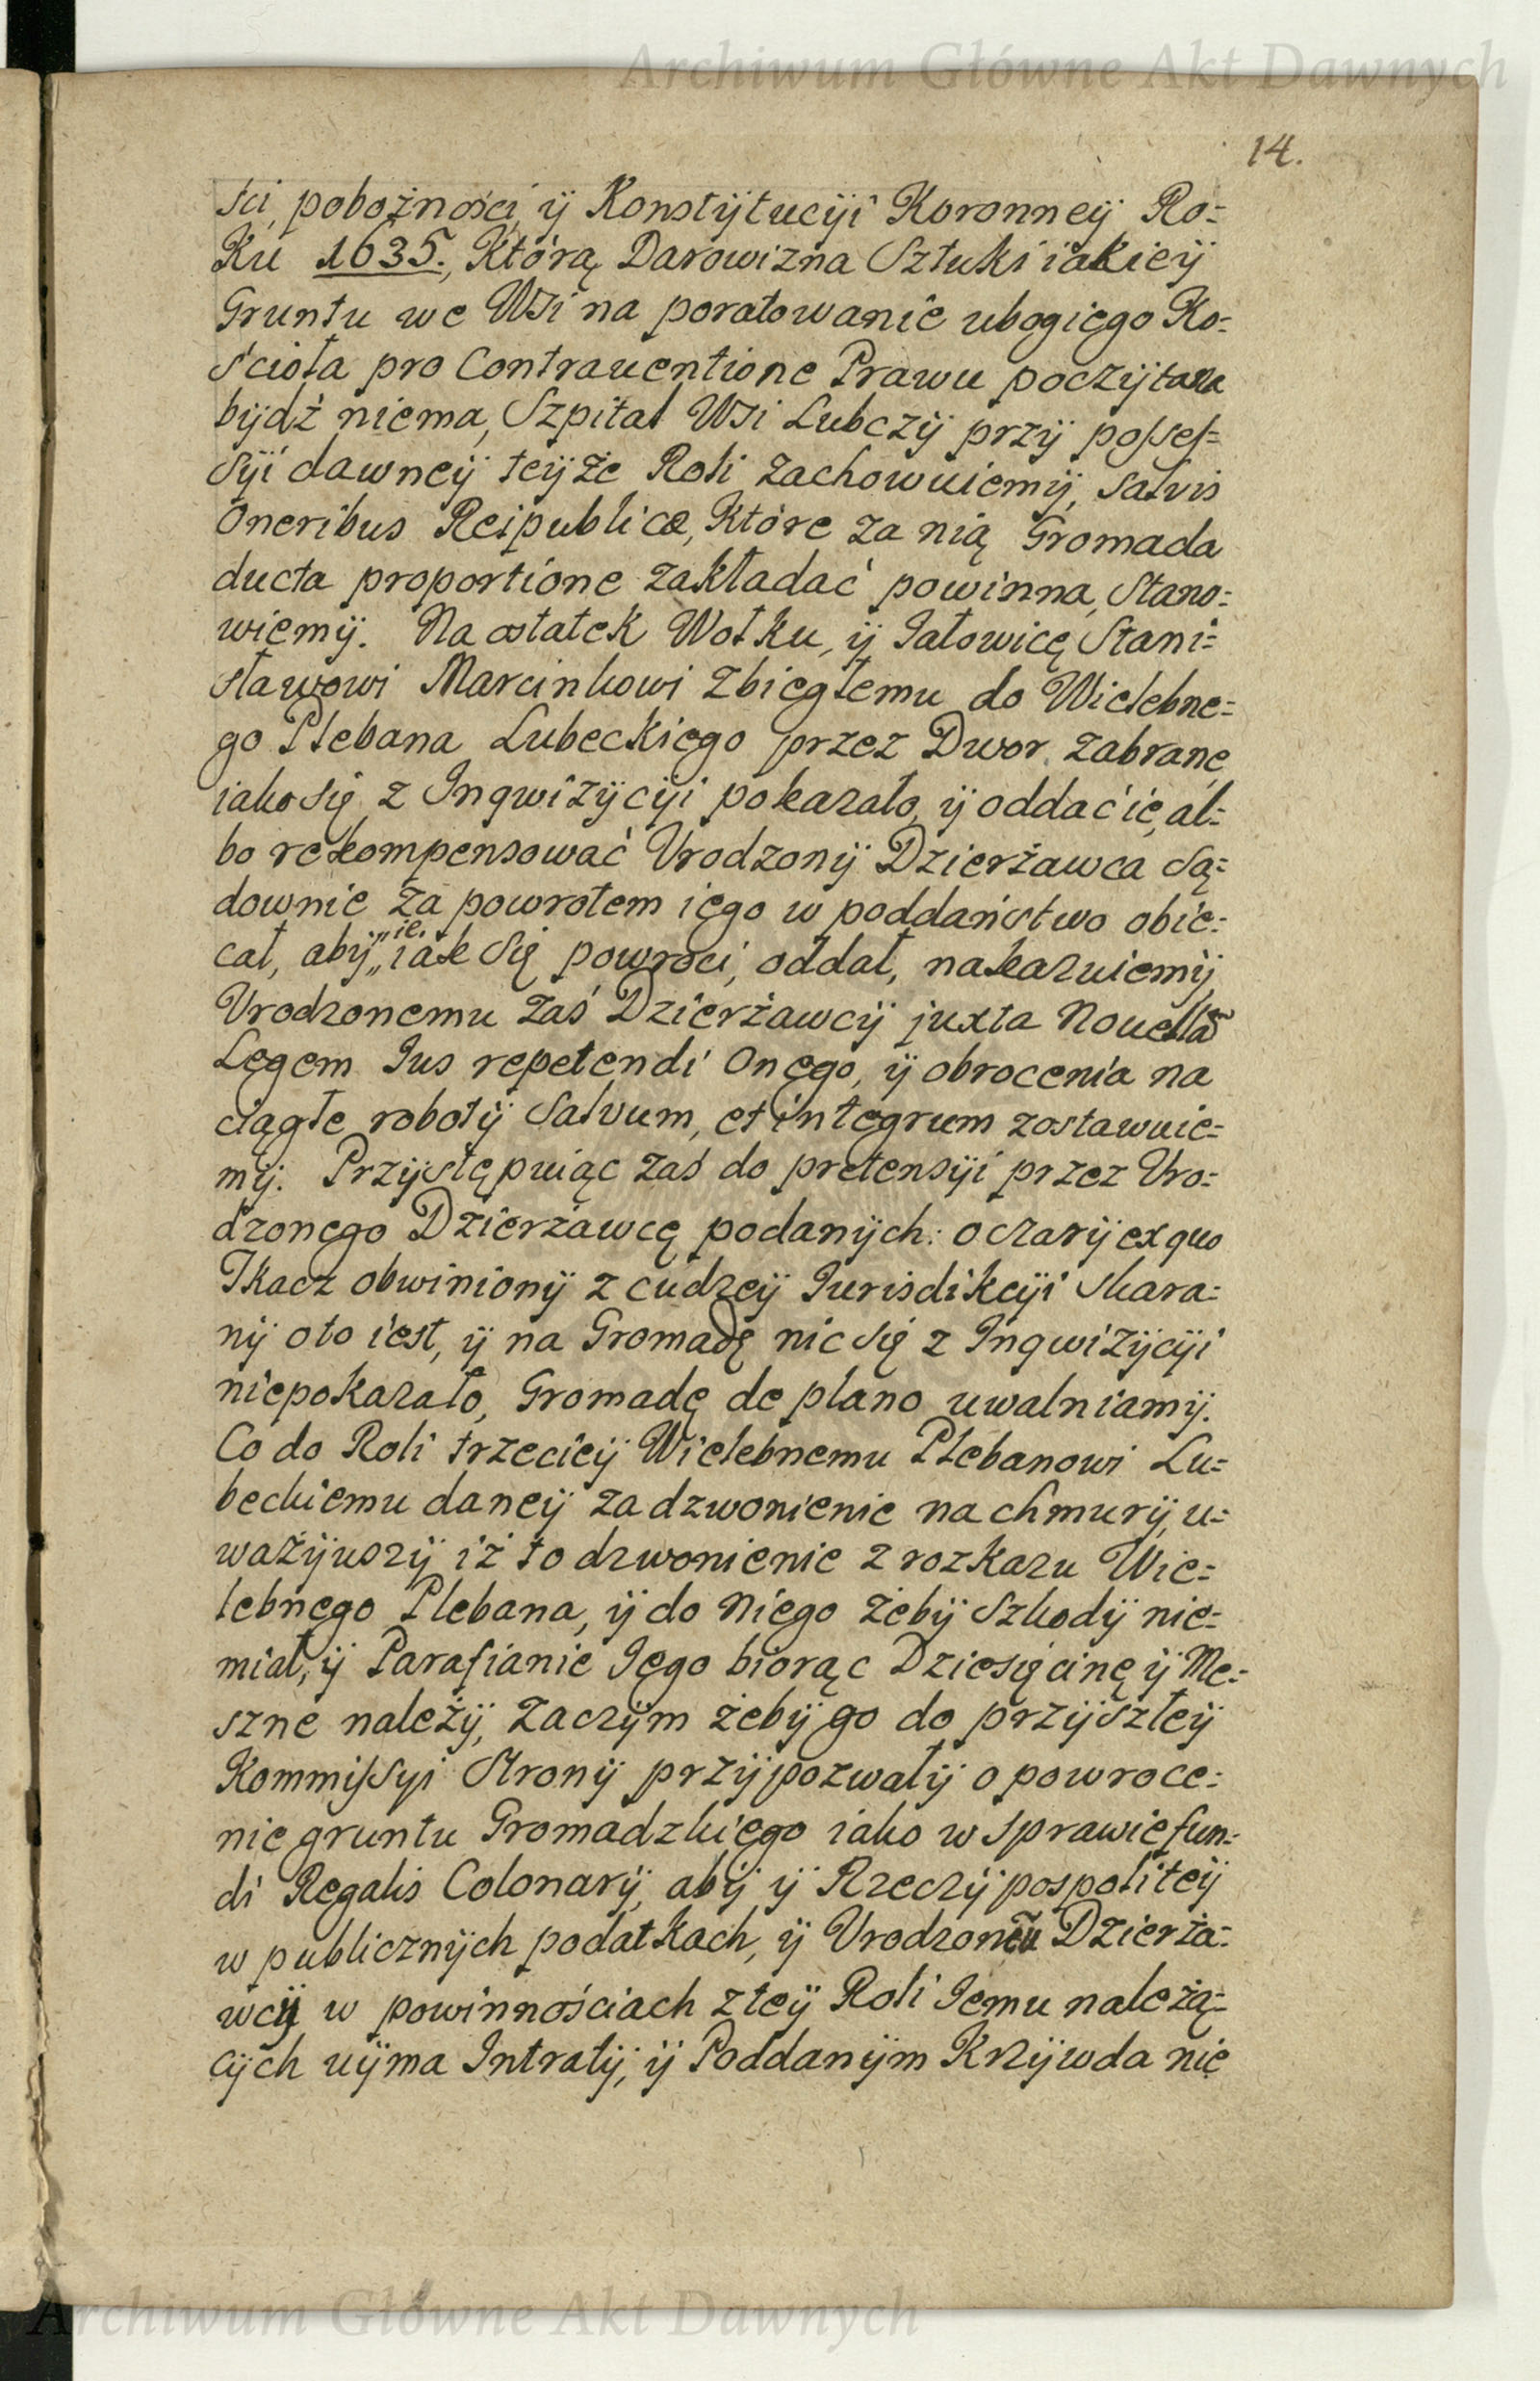 Archiwum Główne Akt Dawnych
14.
ści, pobożności, ÿ Konstÿtucÿi Koronneÿ Ro=
Ku 1635., Którą Darowizna Sztuki iakieÿ
Gruntu we WSi na poratowanie ubogiego Ko=
ścioła pro Contrauentione Prawu poczÿtana
bÿdź niema, Szpital WSi Lubczÿ przÿ posses=
sÿi dawneÿ teÿże Roli zachowuiemÿ, salvis
Oneribus Reipublicæ, Które za nią Gromada
ducta proportione zakładać powinna, Stano=
wiemÿ. Na ostatek Wołku, ÿ Jałowicę Stani=
sławowi Marcinkowi zbiegłemu do Wielebne=
go Plebana Lubeckiego przez Dwor zabrane
iako się z Inqwizÿcÿi pokazało, ÿ oddać ie, al=
bo rekompensować Vrodzonÿ Dzierżawca Są=
downie za powrotem iego w poddaństwo obie=
cał, abÿ „ie.
„iak się powroci, oddał, nakazuiemÿ,
Vrodzonemu zaś Dzierżawcÿ juxta Nouellã
Legem Ius repetendi Onego, ÿ obrocenia na
ciągłe robotÿ Salvum, et integrum zostawuie=
mÿ. Przÿstępuiąc zaś do pretensÿi przez Vro=
dzonego Dzierżawcę podanÿch: o czarÿ ex quo
Tkacz obwinionÿ z cudzeÿ Jurisdikcÿi skara=
nÿ oto iest, ÿ na Gromadę nic się z Inqwizÿcÿi
niepokazało, Gromadę de plano uwalniamÿ.
Co do Roli trzecieÿ Wielebnemu Plebanowi Lu=
beckiemu daneÿ za dzwonienie na chmurÿ, u=
ważÿwszÿ iż to dzwonienie z rozkazu Wie=
lebnego Plebana, ÿ do Niego żebÿ Szkodÿ nie=
miał, ÿ Parafianie Jego biorąc Dziesięcinę ÿ Me=
szne należÿ, zaczÿm żebÿ go do przÿszłeÿ
Kommissyi Stronÿ przÿpozwałÿ o powroce=
nie gruntu Gromadzkiego iako w sprawie fun=
di Regalis Colonarÿ, abÿ ÿ Rzeczÿpospoliteÿ
w publicznÿch podatkach, ÿ Vrodzonẽu Dzierża=
wcÿ w powinnościach z teÿ Roli Jemu należą=
cÿch uÿma Intratÿ, ÿ Poddanÿm Krzÿwda nie
Archiwum Główne Akt Dawnych